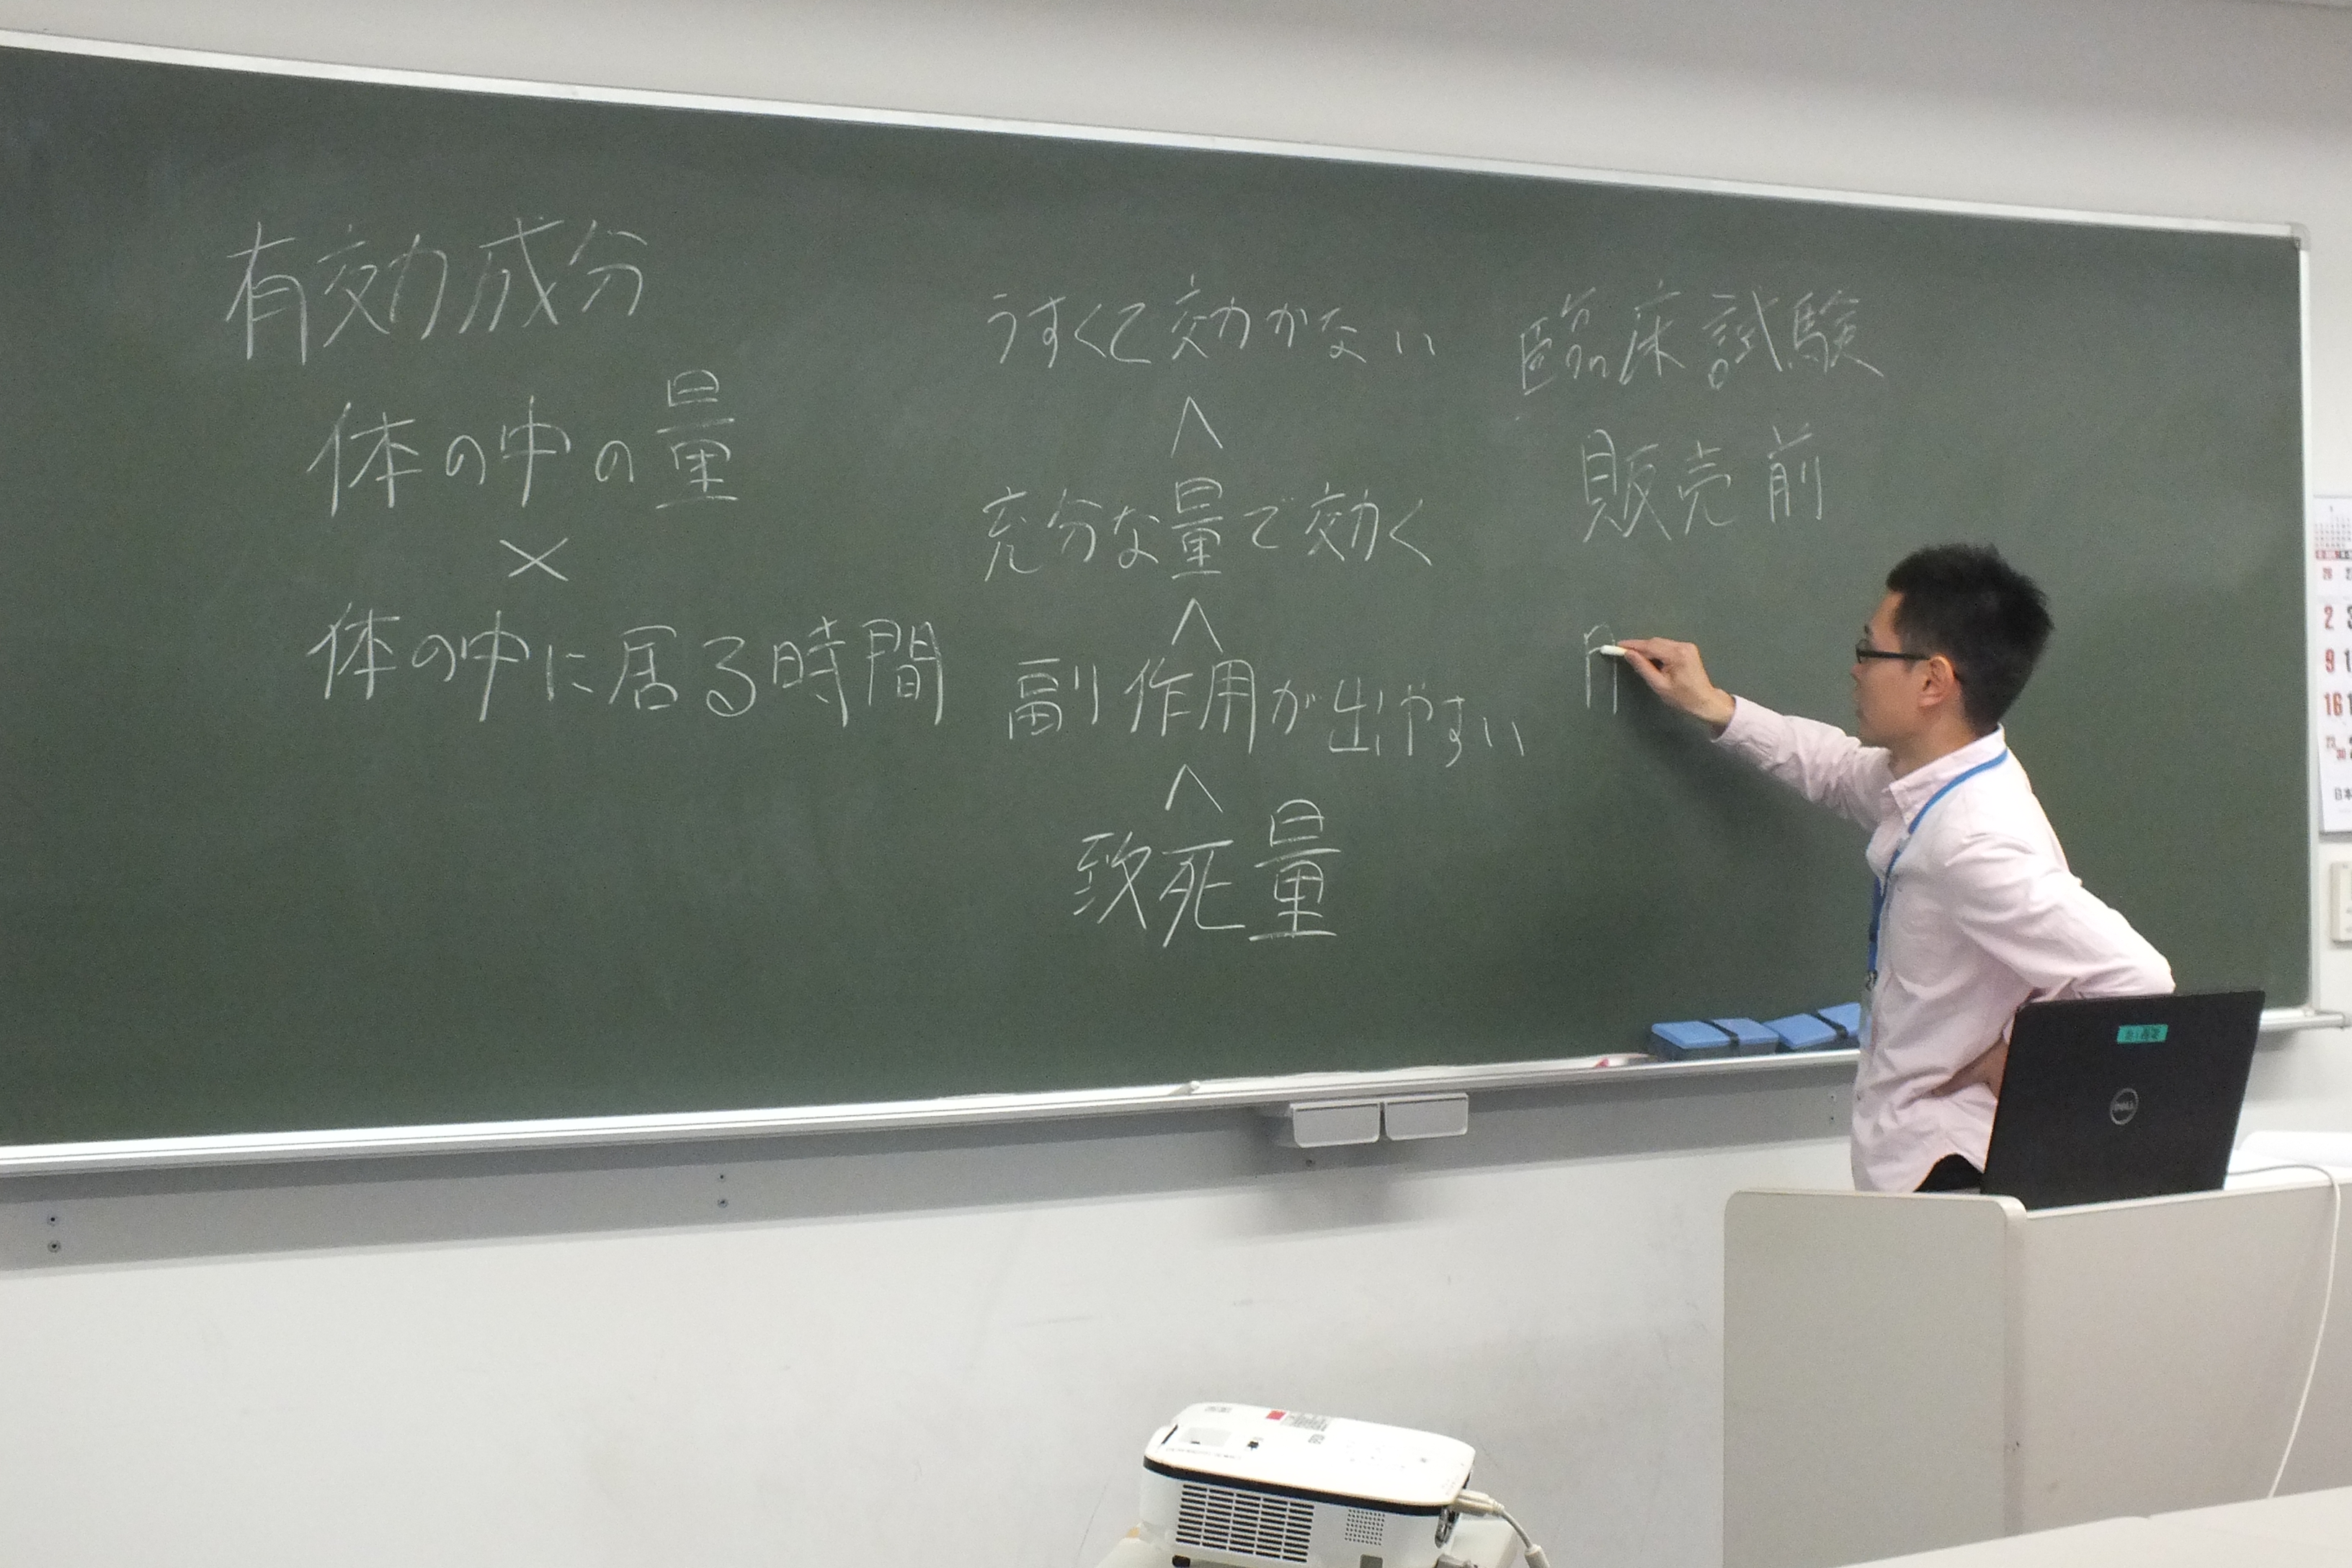 有効成分
体の中の量
×
体の中に居る時間
うすくて効かない
∧
充分な量で効く
∧
副作用が出やすい
∧
致死量
臨床試験
販売前
DELL
2
9
16
日本